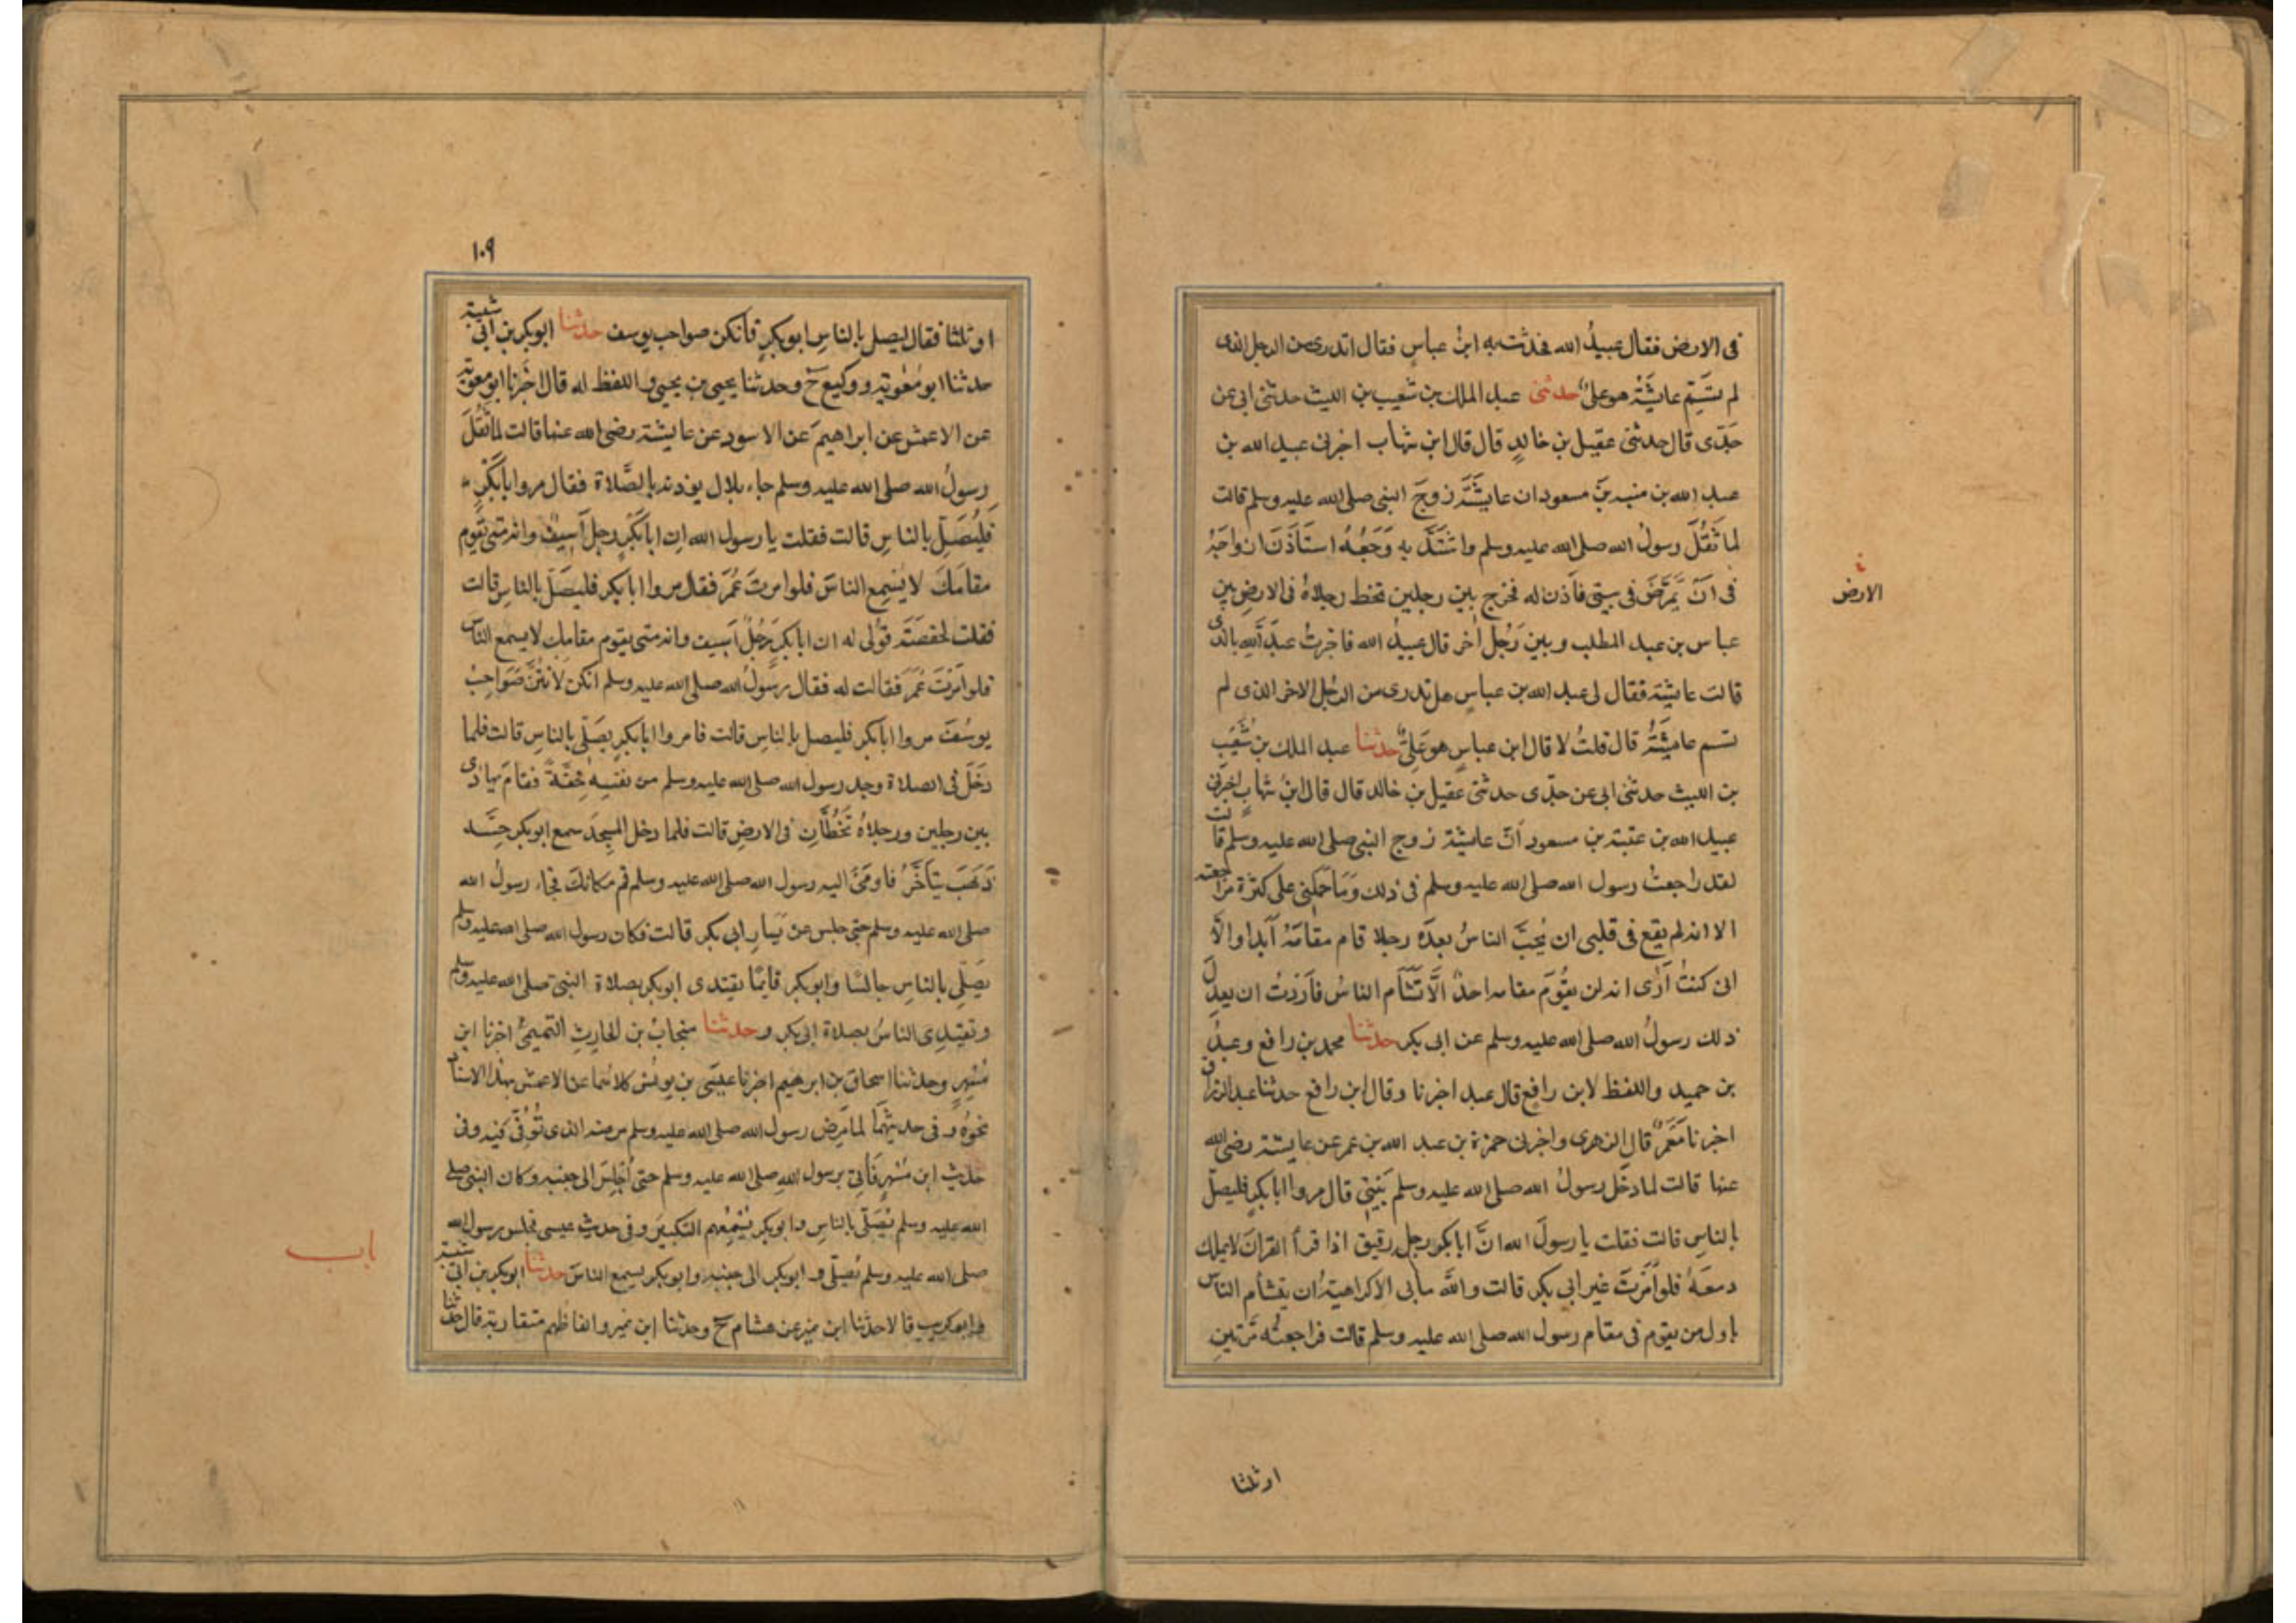 فى الارض فقال عبيدُ الله فحدثت به ابنُ عباسٍ فقال اتدرى من الرجل الذى
لم تسَمِّ عايشَةُ هو علىٌ حدثنى عبد الملك بن شعيب بن الليث حدثنى ابى عن
جَدّى قال حدثنى عقيل بن خالدٍ قال قال ابن شهاب اخبرنى عبيد الله بن
عبد الله بن عتبه بن مسعود ان عايشَةَ زوجَ النبى صلى الله عليه وسلم قالت
لما ثَقُلَ رسولُ الله صلى الله عليه وسلم واشتَدَّ به وَجَعُهُ استَأذَنَ ازواجَهُ
فى اَن يُمَرَّضَ فى بيتى فأذن له فخرج بين رجلين تخط رجلاهُ فى الارضِ بين
الارض
عباس بن عبد المطلب وبين رَجُلٍ اخر قال عبيدُ الله فاخبرتُ عبدَ الله بالذى
قالت عايشَة فقال لى عبد الله بن عباسٍ هل تدرى من الرجُل الاخر الذى لم
تسم عايشَةُ قال قلتُ لا قال ابن عباسٍ هو عَلِىٌّ حدثنا عبد الملك بن شُعَيب
بن الليث حدثنى ابى عن جدّى حدثنى عقيل بن خالد قال قال ابنُ شهابٍ اخبرنى
عبيد الله بن عتبة بن مسعود اَنّ عايشة زوج النبى صلى الله عليه وسلم قالت
لقد راجعتُ رسول الله صلى الله عليه وسلم فى ذلك وَمَا حَمَلَنِى على كثرة مراجعته
الا انه لم يقع فى قلبى ان يُحِبَّ الناسُ بعدَه رجلا قام مقامَهُ اَبَدا والَّا
انى كنتُ اَرَى انه لن يقُوَم مقامه احدٌ الَّا تَشَأَم الناسُ فاَردتُ ان يعدِلَ
ذلك رسولُ الله صلى الله عليه وسلم عن ابى بكر حدثنا محمد بن رافع وعبدُ
بن حميد واللفظ لابن رافعٍ قال عبد اخبرنا وقال ابن رافع حدثنا عبد الرزاق
اخبرنا مَعمَرٌ قال الزهرى واخبرنى حمزة بن عبد الله بن عمر عن عايشة رضى الله
عنها قالت لما دخَل رسولُ الله صلى الله عليه وسلم بَيتِى قال مروا ابا بكرٍ فليصلّ
بالناسِ قالت فقلت يا رسولَ الله انَّ ابا بكرٍ رجل رقيق اذا قرأ القرانَ لا يملك
دمعَهُ فلو اَمَرتَ غير ابى بكر قالت واللَّه ما بى الا كراهيَةُ ان يتشأم الناس
باول من يقوم فى مقام رسول الله صلى الله عليه وسلم قالت فراجعتُه مَرّتينِ
او ثلثا
١٠٩
او ثلثا فقال ليصل بالناسِ ابو بكرٍ فانكن صواحب يوسف حدثنا ابو بكر بن ابى شيبة
حدثنا ابو مُعٰوية ووكيع ح وحدثنا يحيى بن يحيى واللفظ له قال اخبرنا ابو معوية
عن الاعمش عن ابراهيمَ عن الاسود عن عايشة رضى الله عنها قالت لما ثَقُلَ
رسولُ الله صلى الله عليه وسلم جاء بلال يوذنه بالصَّلاة فقال مروا ابا بَكْرٍ
فليُصَلِّ بالناسِ قالت فقلت يا رسول الله ان ابا بكرٍ رجل اَسِيفٌ وانه متى يَقوم
مقامَكَ لا يُسْمِع الناسَ فلو امرتَ عُمَرَ فقال مروا ابا بكر فليصَلّ بالناسِ قالت
فقلت لحفصَةَ قُولى له ان ابا بكرٍ رَجُلٌ اَسيف وانه متى يقوم مقامك لا يسمع الناس
فلو اَمَرتَ عُمَرَ فقالت له فقال رسولُ الله صلى الله عليه وسلم انكن لأنتُنَّ صَوَاحِبُ
يوسُفَ مروا ابا بكر فليصل بالناسِ قالت فامروا ابا بكرٍ يصَلّى بالناسِ قالت فلما
دَخَلَ فى الصلاة وجد رسول الله صلى الله عليه وسلم من نفسِه خِفَّةً فقامَ يهادى
بين رجلين ورجلاهُ تَخُطَّانِ فى الارضِ قالت فلما دخل المسجدَ سمع ابو بكر حِسَّه
ذهَبَ يتَأخَّرُ فاومَىَ اليه رسول الله صلى الله عليه وسلم قم مكانكَ فجاء رسولُ الله
صلى الله عليه وسلم حتى جلس عن يَسارِ ابى بكر قالت فكان رسول الله صلى الله عليه وسلم
يصَلّى بالناسِ جالسًا وابو بكر قايمًا يقتدى ابو بكر بصلاة النبى صلى الله عليه وسلم
وتقتدِى الناسُ بصلاة ابى بكر وحدثنا منجابُ بن الحارِثِ التميمىُّ اخبرنا ابن
مُسْهِرٍ وحدثنا اسحاق بن ابرهيم اخبرنا عيسَى بن يونُس كلاهما عن الاعمش بهذا الاسناد
نحوَهُ وفى حديثهَما لما مَرِضَ رسول الله صلى الله عليه وسلم مرضه الذى تُوُفّى فيه وفى
حديث ابن مُسْهِرٍ فَاُتِىَ برسول اللهِ صلى الله عليه وسلم حتى اُجْلِسَ الى جنبه وكان النبى صلى
الله عليه وسلم يُصَلّى بالناسِ وابو بكر يُسْمِعُهم التكبيرَ وفى حديث عيسى فجلس رسول الله
صلى الله عليه وسلم يُصَلّى وابو بكر الى جنبه وابو بكر يسمع الناسَ حدثنا ابو بكر بن ابى شيبة
باب
وابو كريب قالا حدثنا ابن نمير عن هشام ح وحدثنا ابن نمير والفاظهم متقاربة قال حدثنا